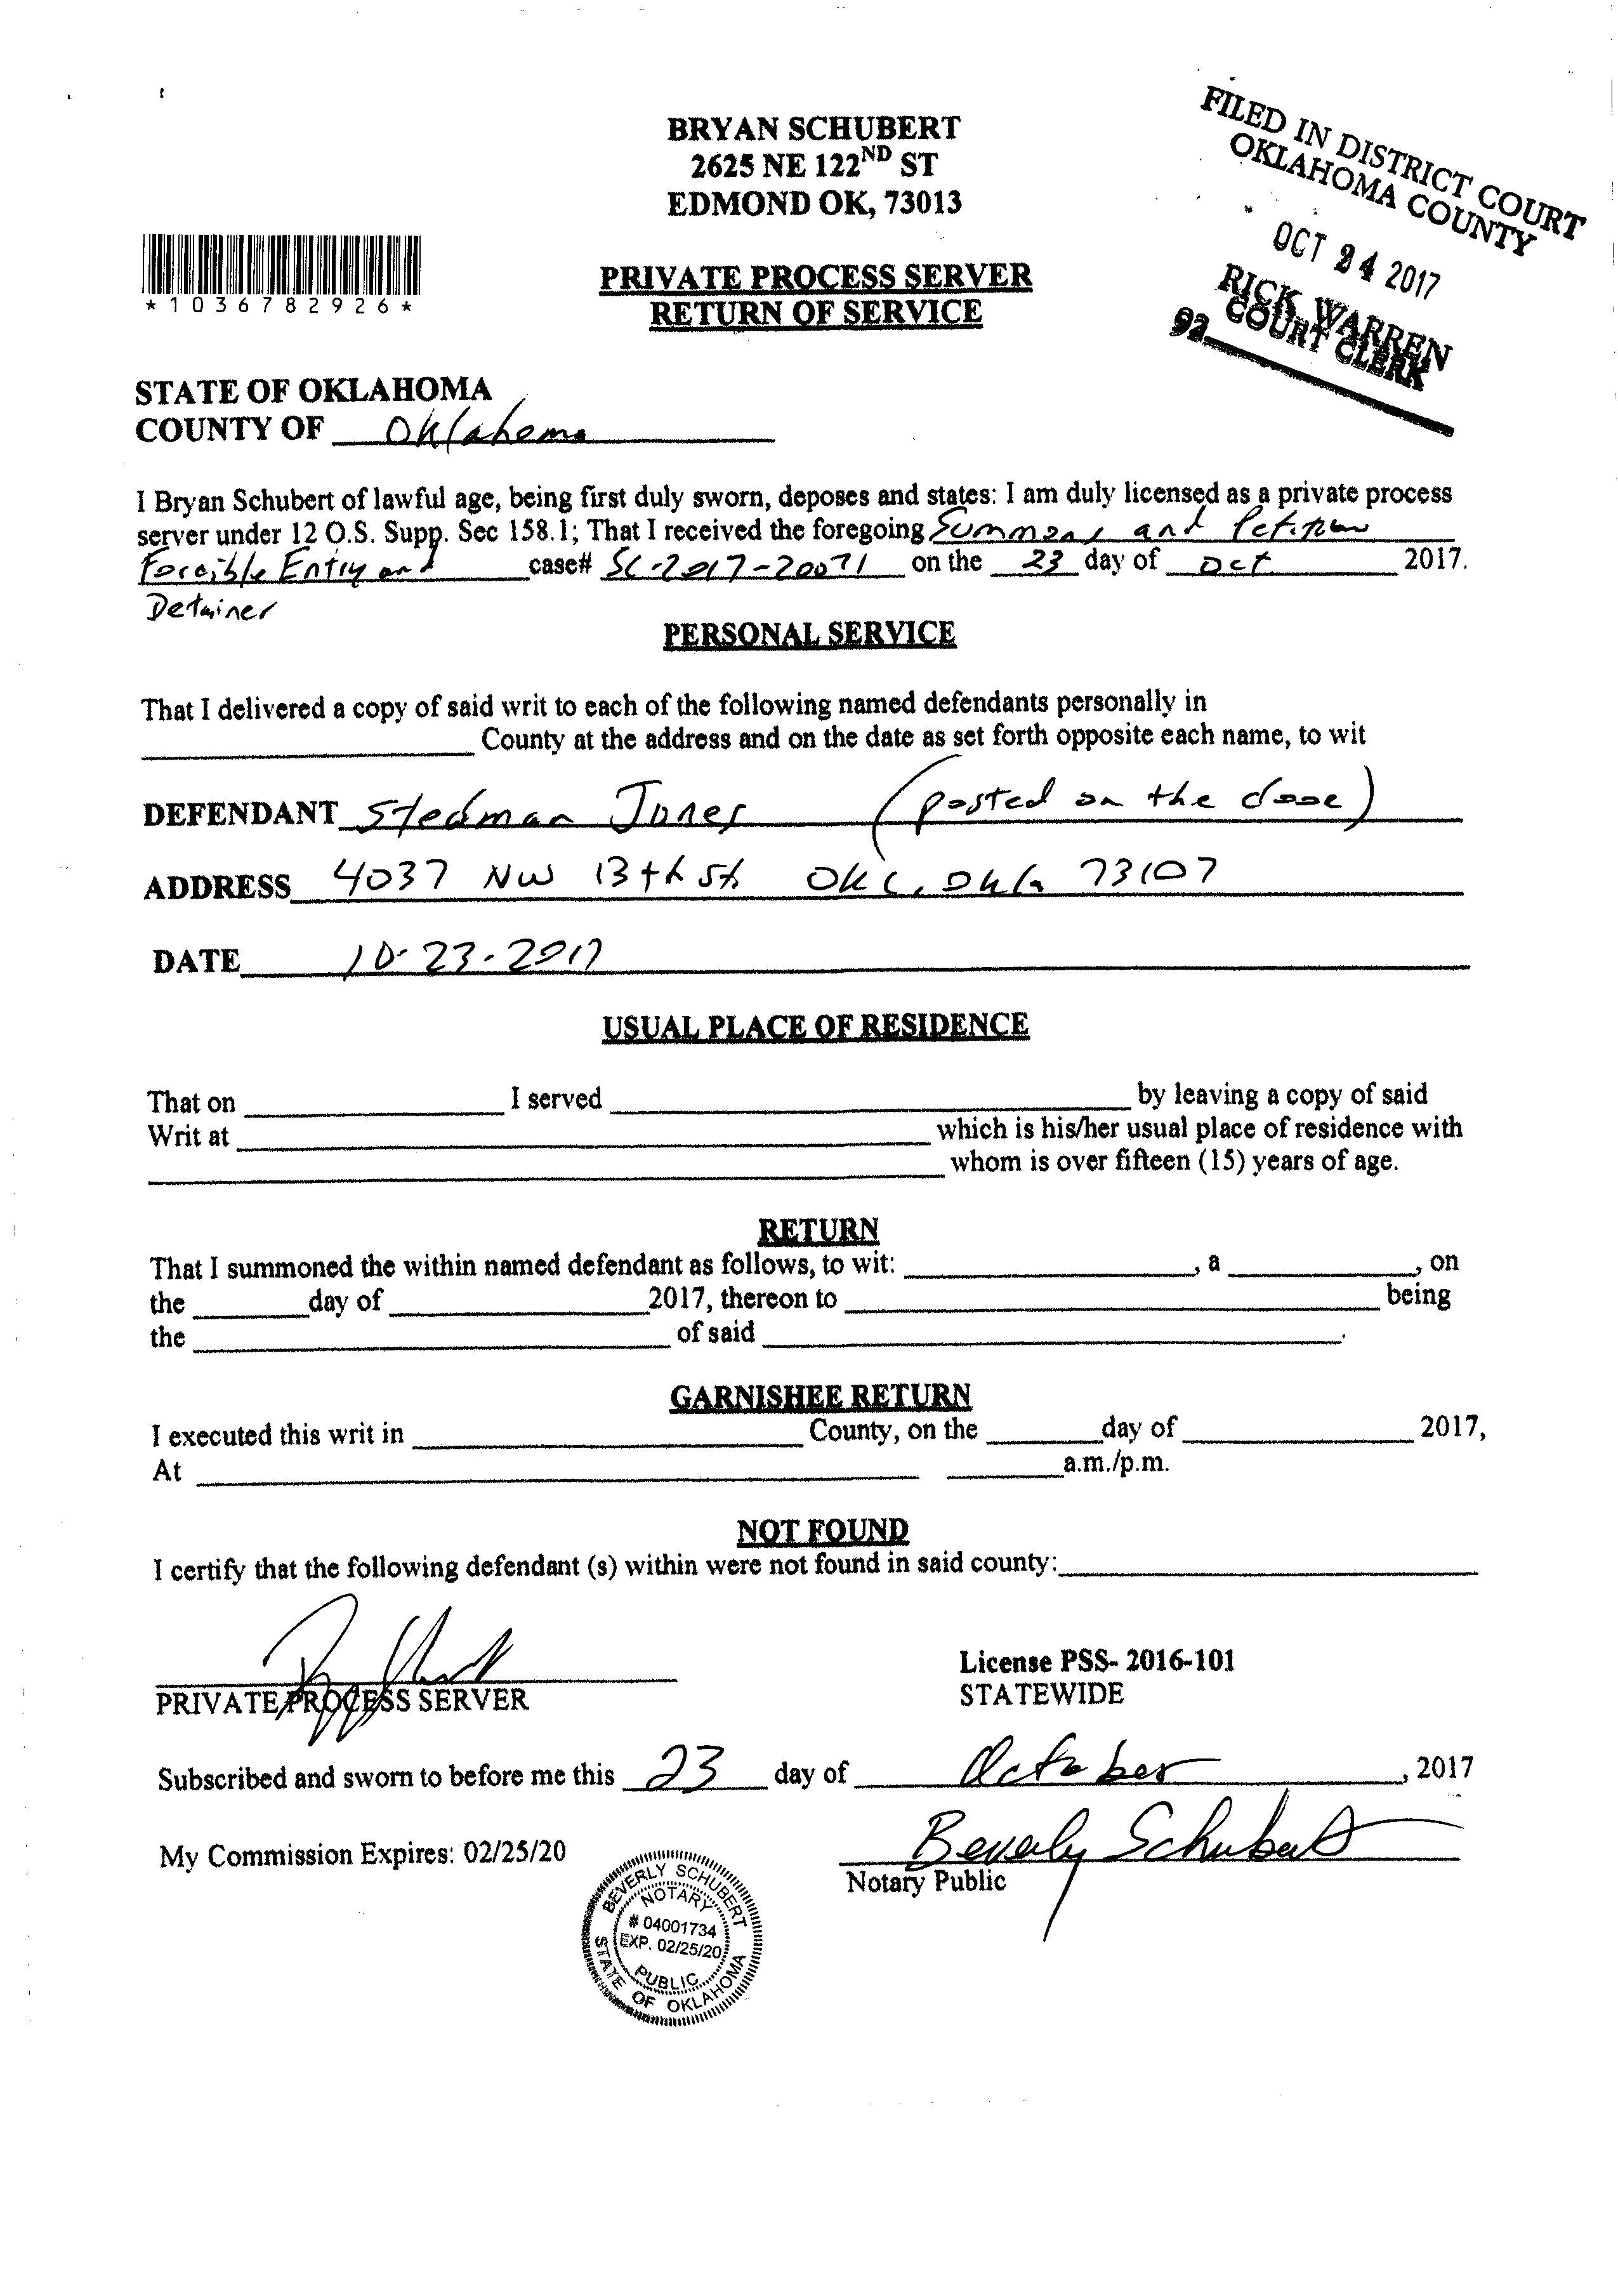 BRYAN SCHUBERT
2625 NE 122ND ST
EDMOND OK, 73013
FILED IN DISTRICT COURT
OKLAHOMA COUNTY
OCT 24 2017
RICK WARREN
COURT CLERK
92
*1036782926*
PRIVATE PROCESS SERVER
RETURN OF SERVICE
STATE OF OKLAHOMA
COUNTY OF Oklahoma
I Bryan Schubert of lawful age, being first duly sworn, deposes and states: I am duly licensed as a private process
server under 12 O.S. Supp. Sec 158.1; That I received the foregoing Summons and Petition
Forcible Entry and case# SC-2017-20071 on the 23 day of Oct 2017.
Detainer
PERSONAL SERVICE
That I delivered a copy of said writ to each of the following named defendants personally in
County at the address and on the date as set forth opposite each name, to wit
DEFENDANT Stedman Jones (posted on the dooe)
ADDRESS 4037 NW 13th St OKC, Okla 73107
DATE 10-23-2017
USUAL PLACE OF RESIDENCE
That on I served by leaving a copy of said
Writ at which is his/her usual place of residence with
whom is over fifteen (15) years of age.
RETURN
That I summoned the within named defendant as follows, to wit: , a , on
the day of 2017, thereon to being
the of said .
GARNISHEE RETURN
I executed this writ in County, on the day of 2017,
At a.m./p.m.
NOT FOUND
I certify that the following defendant (s) within were not found in said county:
PRIVATE PROCESS SERVER
License PSS- 2016-101
STATEWIDE
Subscribed and sworn to before me this 23 day of October , 2017
My Commission Expires: 02/25/20
Beverly Schubert
Notary Public
BEVERLY SCHUBERT
NOTARY
# 04001734
EXP. 02/25/20
PUBLIC
STATE OF OKLAHOMA